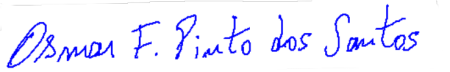 Osmar F. Pinto dos Santos